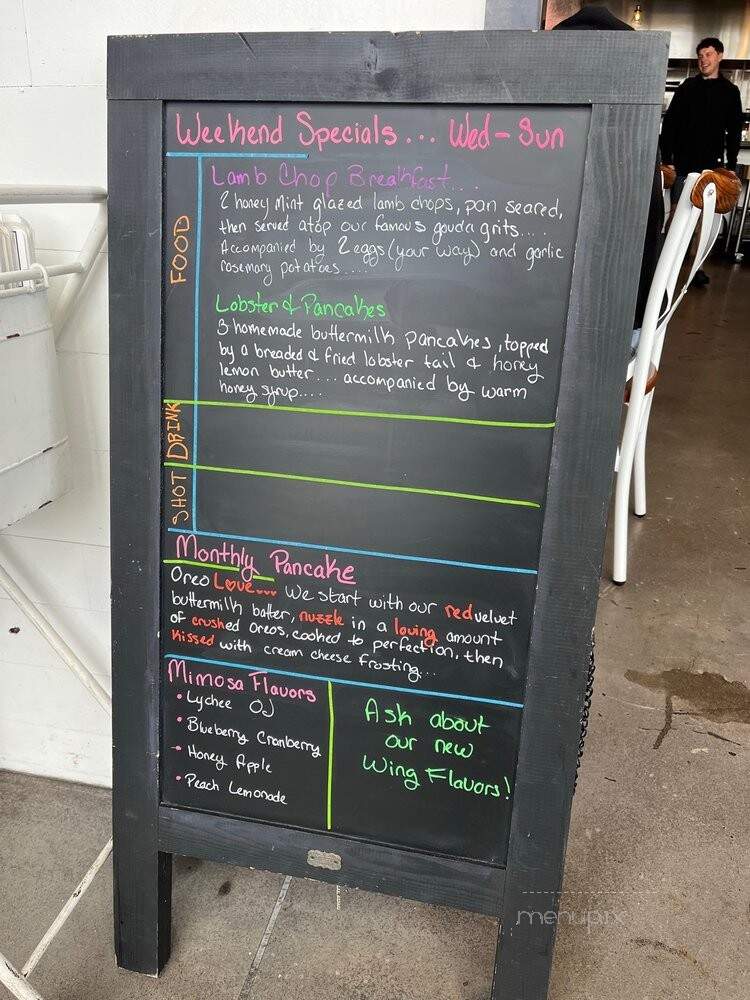 Weekend Specials... Wed-Sun
FOOD
Lamb Chop Breakfast....
2 honey mint glazed lamb chops, pan seared,
then served atop our famous gouda grits....
Accompanied by 2 eggs (your way) and garlic
rosemary potatoes....
Lobster & Pancakes
3 homemade buttermilk pancakes, topped
by a breaded & fried lobster tail & honey
lemon butter... accompanied by warm
honey syrup....
DRINK
SHOT
Monthly Pancake
Oreo Love... We start with our red velvet
buttermilk batter, nuzzle in a loving amount
of crushed oreos, cooked to perfection, then
kissed with cream cheese frosting...
Mimosa Flavors
• Lychee OJ
• Blueberry Cranberry
• Honey Apple
• Peach Lemonade
Ask about
our new
Wing Flavors!
menupix